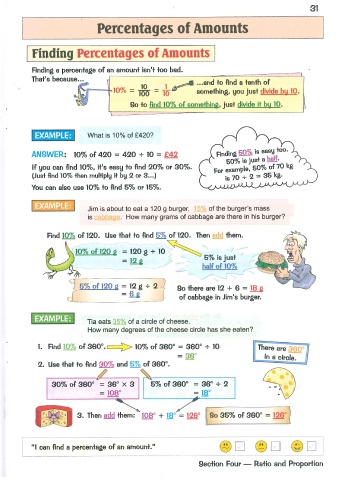 31
Percentages of Amounts
Finding Percentages of Amounts
Finding a percentage of an amount isn't too bad.
That's because...
10% = 10/100 = 1/10
...and to find a tenth of
something, you just divide by 10.
So to find 10% of something, just divide it by 10.
EXAMPLE:
What is 10% of £420?
ANSWER: 10% of 420 = 420 ÷ 10 = £42
If you can find 10%, it's easy to find 20% or 30%.
(Just find 10% then multiply it by 2 or 3...)
You can also use 10% to find 5% or 15%.
Finding 50% is easy too.
50% is just a half.
For example, 50% of 70 kg
is 70 ÷ 2 = 35 kg.
EXAMPLE:
Jim is about to eat a 120 g burger. 15% of the burger's mass
is cabbage. How many grams of cabbage are there in his burger?
Find 10% of 120. Use that to find 5% of 120. Then add them.
10% of 120 g = 120 ÷ 10
= 12 g
5% is just
half of 10%
5% of 120 g = 12 g ÷ 2
= 6 g
So there are 12 + 6 = 18 g
of cabbage in Jim's burger.
EXAMPLE:
Tia eats 35% of a circle of cheese.
How many degrees of the cheese circle has she eaten?
1. Find 10% of 360°.
10% of 360° = 360° ÷ 10
= 36°
There are 360°
in a circle.
2. Use that to find 30% and 5% of 360°.
30% of 360° = 36° × 3
= 108°
5% of 360° = 36° ÷ 2
= 18°
3. Then add them: 108° + 18° = 126°
So 35% of 360° = 126°
"I can find a percentage of an amount."
Section Four — Ratio and Proportion